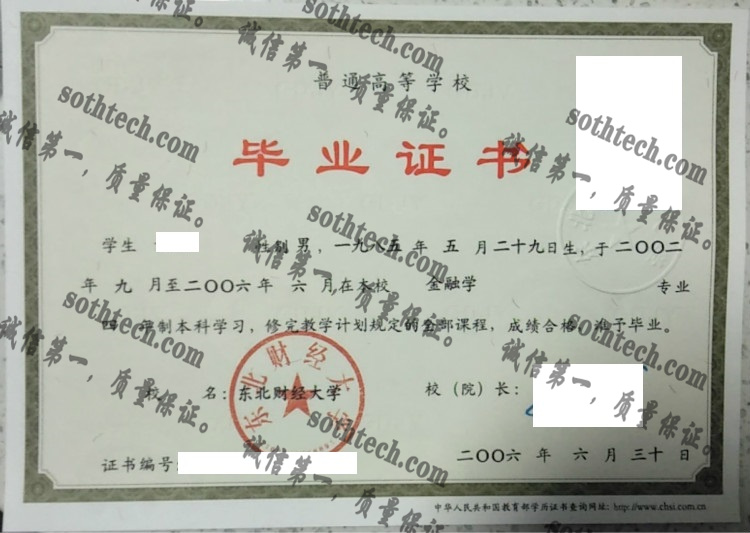 普通高等学校
毕业证书
学生 性别 男，一九八五 年 五 月 二十九日生，于 二〇〇二
年 九 月至 二〇〇六 年 六 月在本校 金融学 专业
四 年制本科学习，修完教学计划规定的全部课程，成绩合格，准予毕业。
校 名：东北财经大学 校（院）长：
东北财经大学
证书编号：
二〇〇六 年 六 月 三十 日
中华人民共和国教育部学历证书查询网址：http://www.chsi.com.cn
sothtech.com
诚信第一，质量保证。
sothtech.com
诚信第一，质量保证。
sothtech.com
诚信第一，质量保证。
sothtech.com
诚信第一，质量保证。
sothtech.com
诚信第一，质量保证。
sothtech.com
诚信第一，质量保证。
sothtech.com
诚信第一，质量保证。